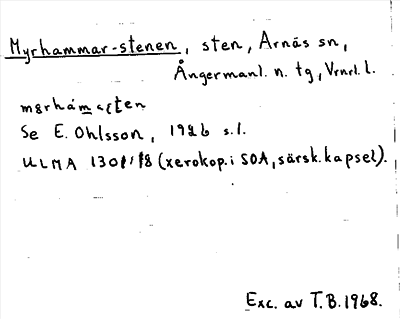 Myrhammar-stenen, sten, Arnäs sn,
Ångermanl. n. tg, Vrnrl. l.
Se E. Ohlsson, 1926 s.1.
ULMA 1301/18 (xerokop. i SOA, särsk. kapsel).
Exc. av T.B. 1968.